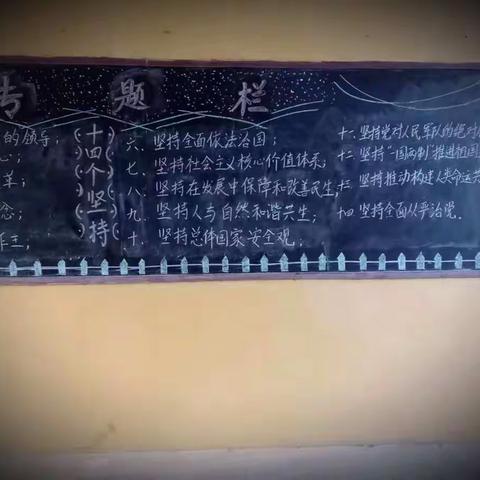 专题栏
的领导；
心；
革；
念；
作主；
十四个坚持
六、坚持全面依法治国；
七、坚持社会主义核心价值体系；
八、坚持在发展中保障和改善民生；
九、坚持人与自然和谐共生；
十、坚持总体国家安全观；
十一、坚持党对人民军队的绝对
十二、坚持“一国两制”推进祖国
十三、坚持推动构建人类命运共
十四、坚持全面从严治党。